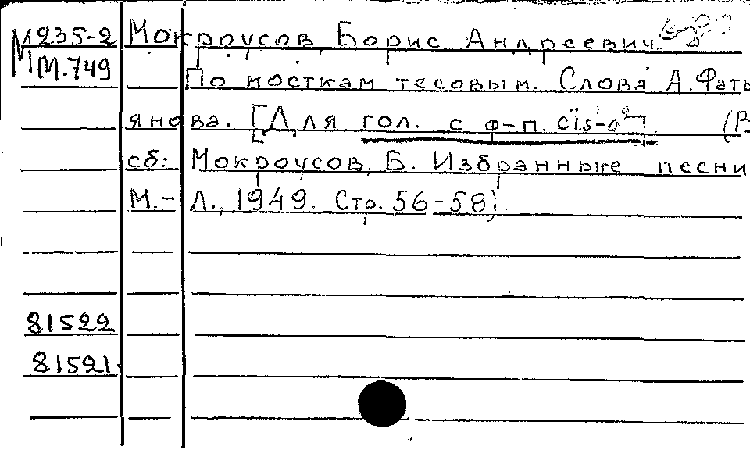 М235-2 Мокроусов, Борис Андреевич.
М.749 По мосткам тесовым. Слова А. Фать
янова. [Для гол. с ф-п. cis-
сб: Мокроусов, Б. Избранные песни
М.-Л., 1949. Стр. 56-58)
81522
81521